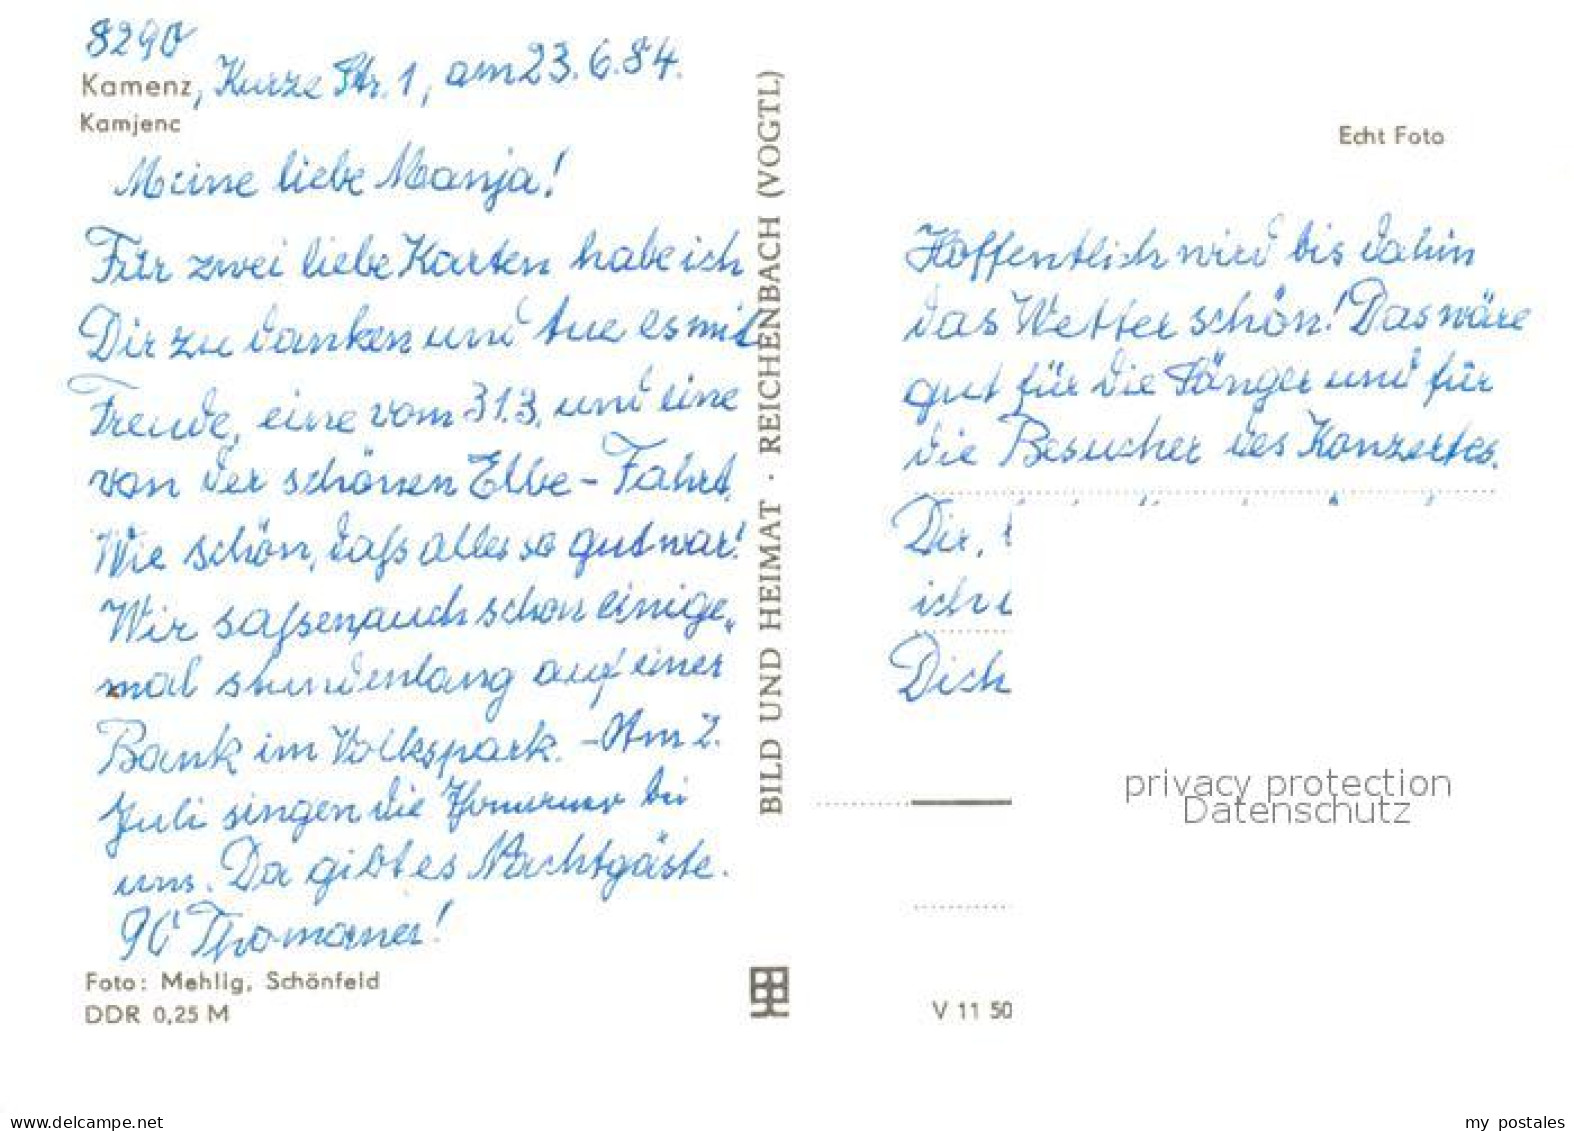 8290
Kamenz, Kurze Str. 1, am 23.6.84.
Kamjenc
Meine liebe Manja!
Für zwei liebe Karten habe ich
Dir zu danken und tue es mit
Freude, eine vom 31.3. und eine
von der schönen Elbe-Fahrt.
Wie schön, daß alles so gut war!
Wir saßen auch schon einige-
mal stundenlang auf einer
Bank im Volkspark. – Am 2.
Juli singen die Thomaner bei
uns. Da gibt es Nachtgäste.
90 Thomaner!
Foto: Mehlig, Schönfeld
DDR 0,25 M
BILD UND HEIMAT · REICHENBACH (VOGTL)
Echt Foto
Hoffentlich wird bis dahin
das Wetter schön! Das wäre
gut für die Sänger und für
die Besucher des Konzertes.
Dir,
ich
Dich
V 11 50
privacy protection
Datenschutz
www.delcampe.net
my_postales